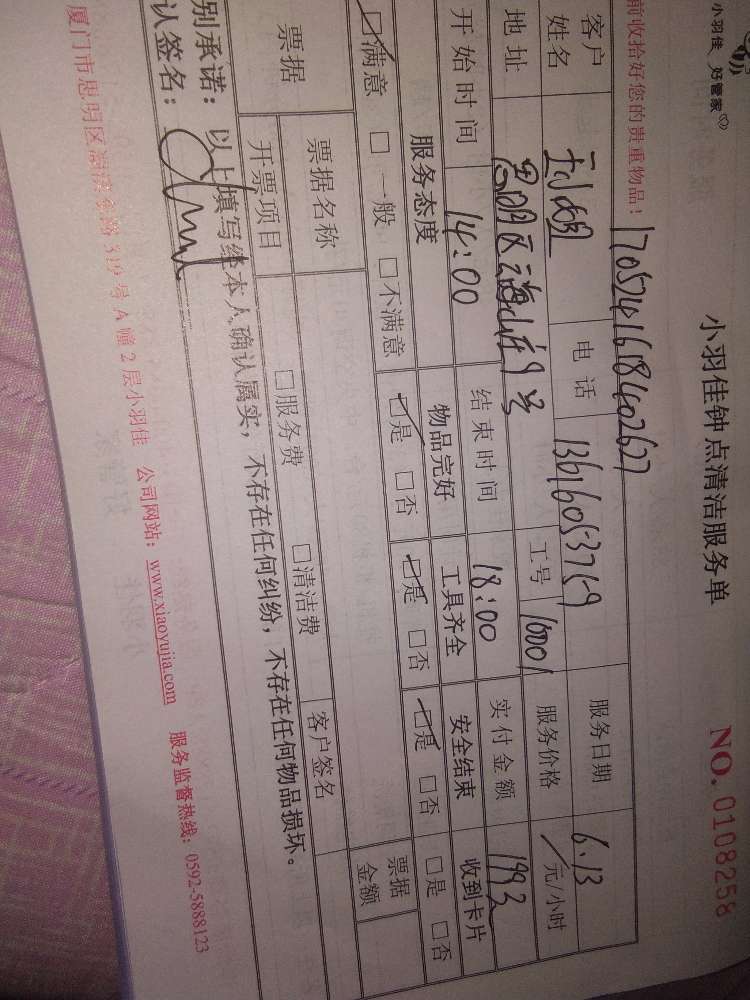 小羽佳 好管家
小羽佳钟点清洁服务单
NO. 0108258
前收拾好您的贵重物品！
1705241618402627
客户姓名 电话 13616053759 服务日期 6.13
地址 思明区 工号 16001 服务价格 元/小时
开始时间 14:00 结束时间 18:00 实付金额 199.2
服务态度 物品完好 工具齐全 安全结束 收到卡片
☑满意 □一般 □不满意 ☑是 □否 ☑是 □否 ☑是 □否 □是 □否
票据 票据名称 □服务费 □清洁费 客户签名 票据金额
开票项目
别承诺：以上填写经本人确认属实，不存在任何纠纷，不存在任何物品损坏。
认签名：
厦门市思明区湖滨南路319号A幢2层小羽佳 公司网站：www.xiaoyujia.com 服务监督热线：0592-5888123